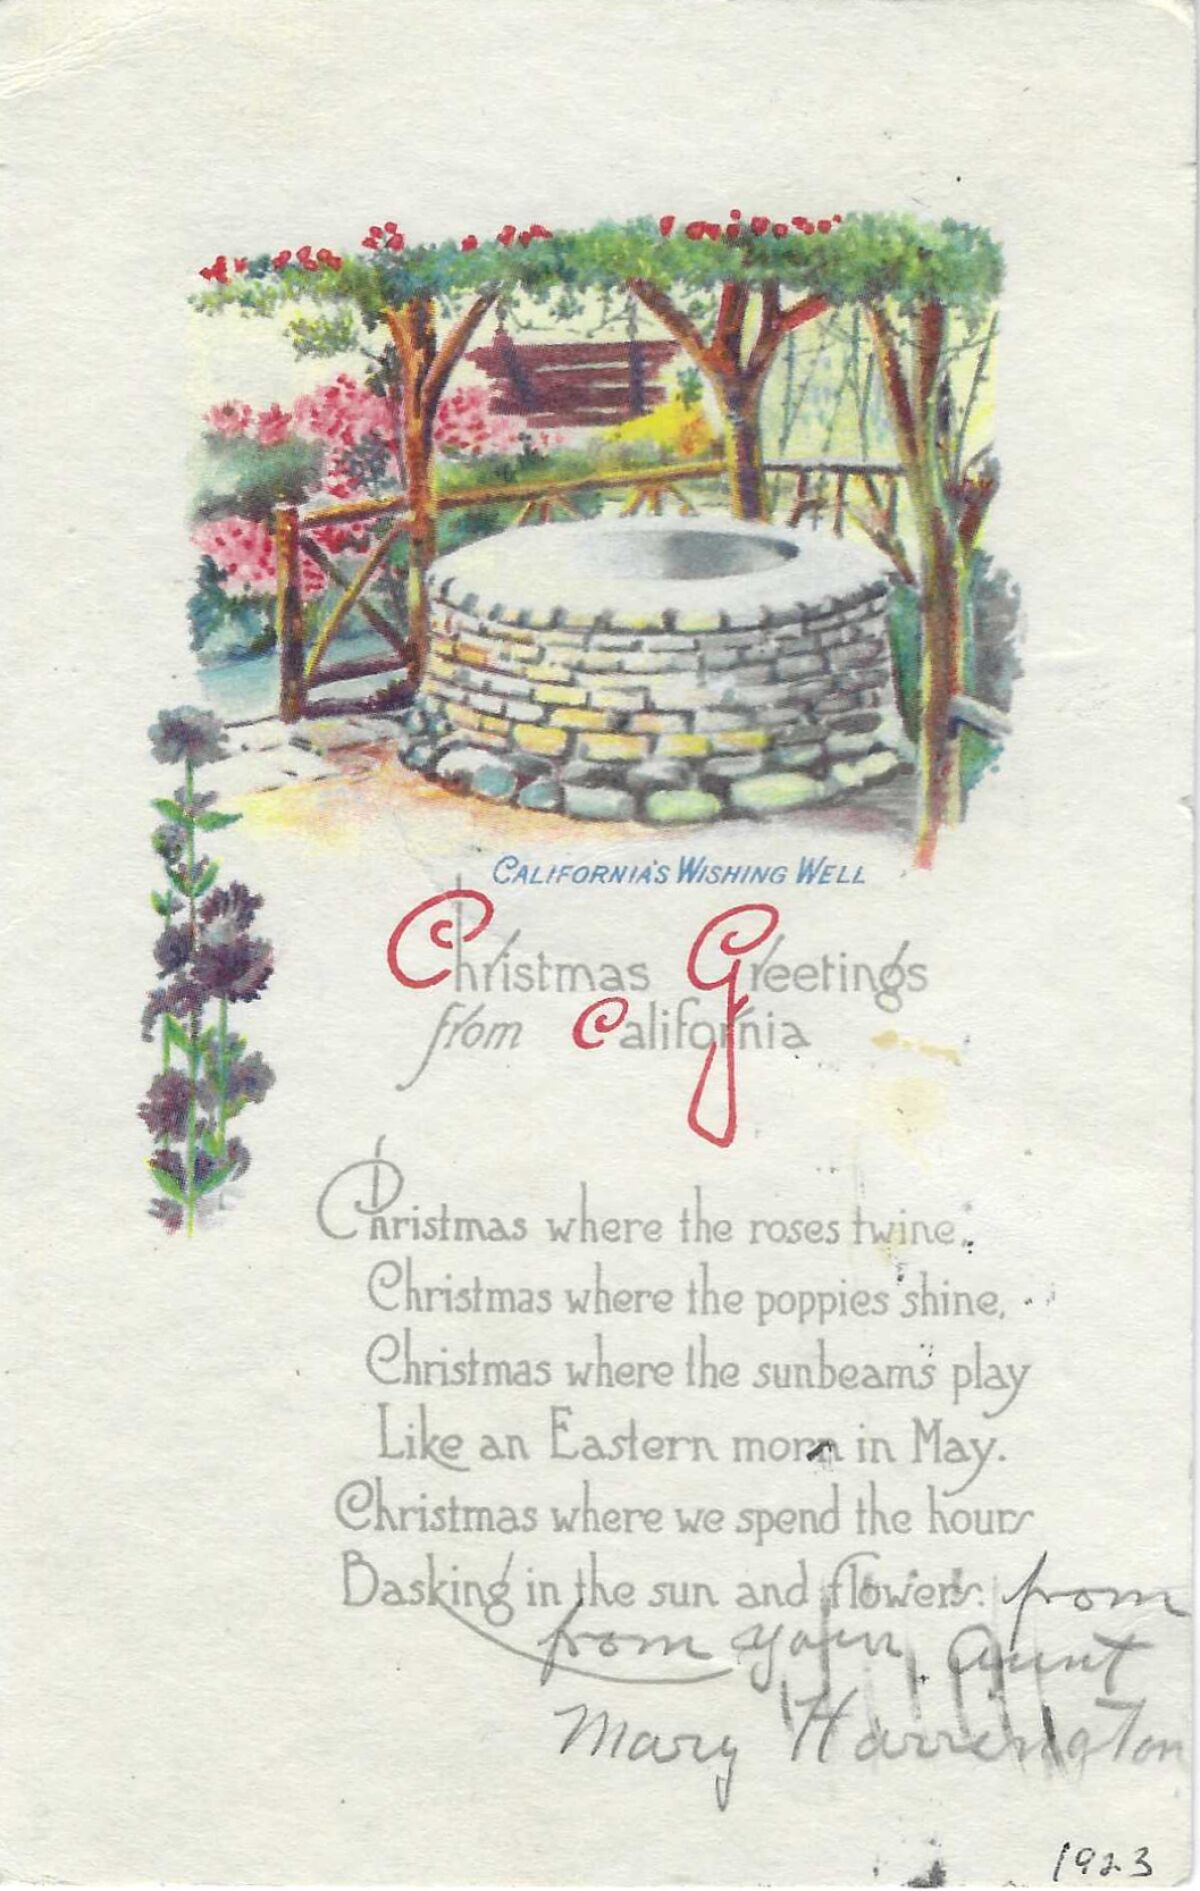 CALIFORNIA'S WISHING WELL
Christmas Greetings
from California
Christmas where the roses twine,
Christmas where the poppies shine,
Christmas where the sunbeams play
Like an Eastern morn in May.
Christmas where we spend the hours
Basking in the sun and flowers. from
from your Aunt
Mary Harrington
1923